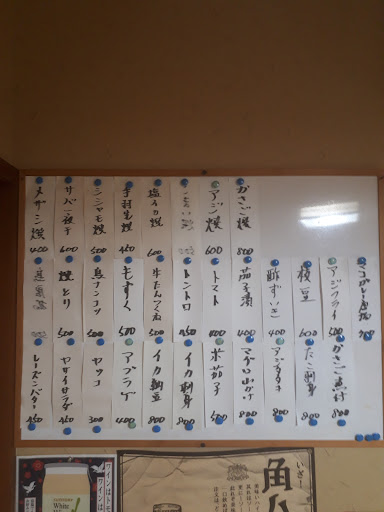 がさご焼 800
アジ焼 600
塩イカ焼 600
手羽先焼 450
シシャモ焼 500
サバ一夜干 600
メザシ焼 400
アジフライ 500
枝豆 600
酢ずいき 400
茄子漬 400
トマト 400
トントロ 450
牛たんつくね 500
もずく 500
鳥ナンコツ 500
焼とり 500
がさご煮付 800
たこ刺身 800
アジタタキ 800
マグロ山かけ 800
米茄子 500
イカ刺身 800
イカ納豆 800
アブラゲ 400
ヤッコ 300
ヤサイサラダ 450
レーズンバター 450
角
ワインはトモ
ワインは
SUNTORY
White